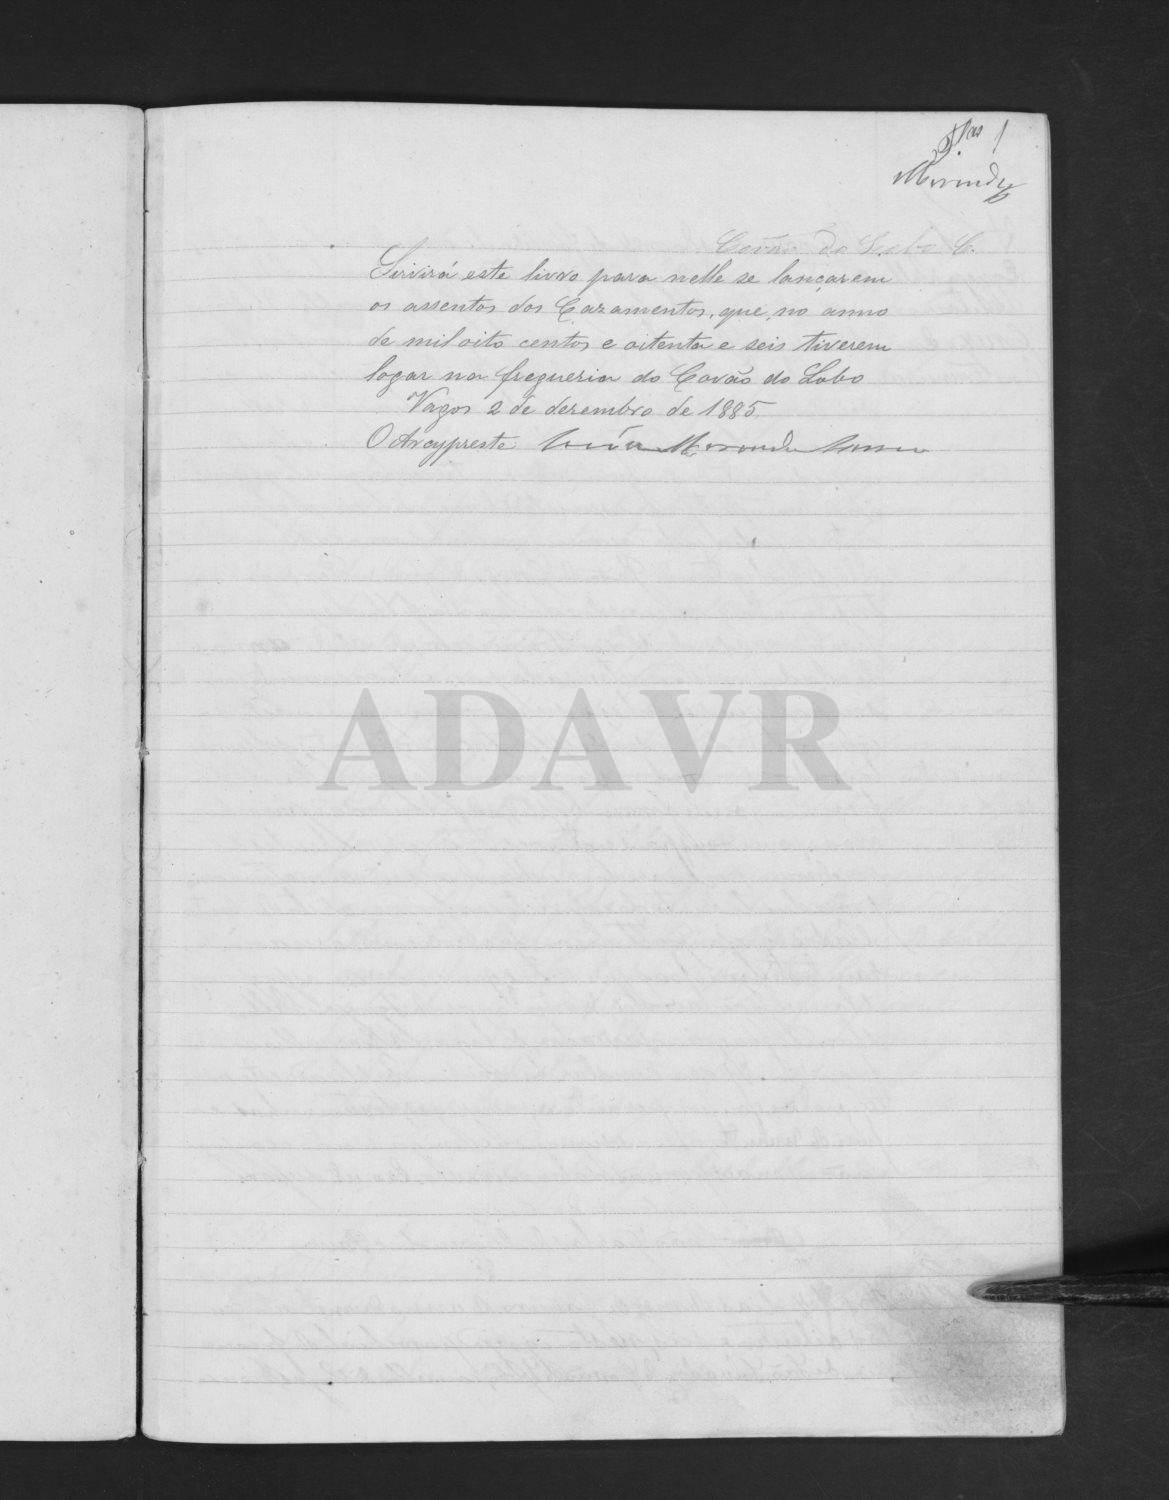 Flas 1
Miranda
Covão do Lobo C.
Sirvirá este livro para nelle se lançarem
os assentos dos Cazamentos, que, no anno
de mil oito centos e oitenta e seis tiverem
logar na freguezia do Covão do Lobo
Vagos 2 de dezembro de 1885.
O Arcypreste
ADAVR